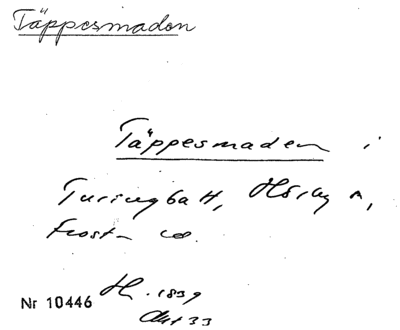 Täppesmaden
Täppesmaden i
Turingbatt, Hörby n,
Frosta
Nr 10446 H. 1839
Akt 33